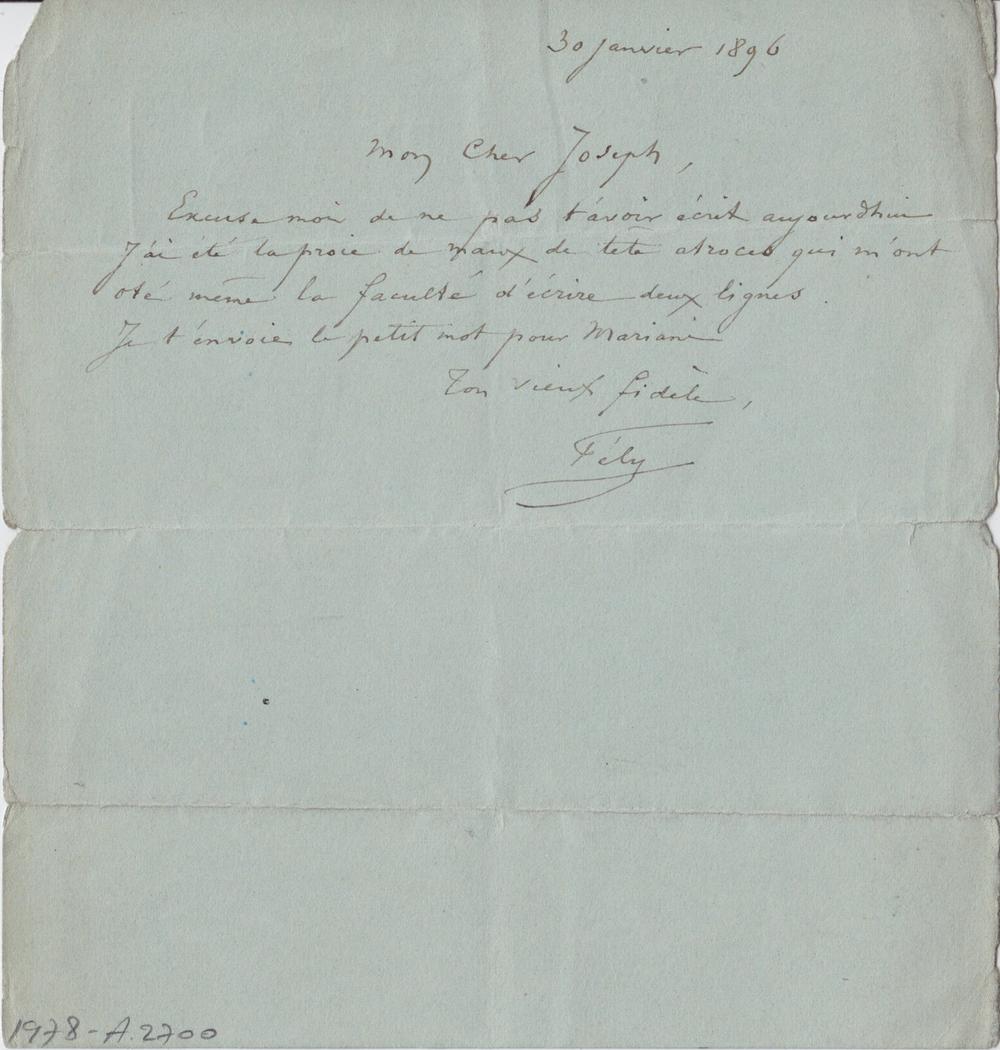 30 janvier 1896
Mon Cher Joseph,
Excuse moi de ne pas t'avoir écrit aujourd'hui
J'ai été la proie de maux de tête atroces qui m'ont
oté même la faculté d'écrire deux lignes.
Je t'envoie le petit mot pour Mariani
Ton vieux fidèle,
Fély
1978-A.2700